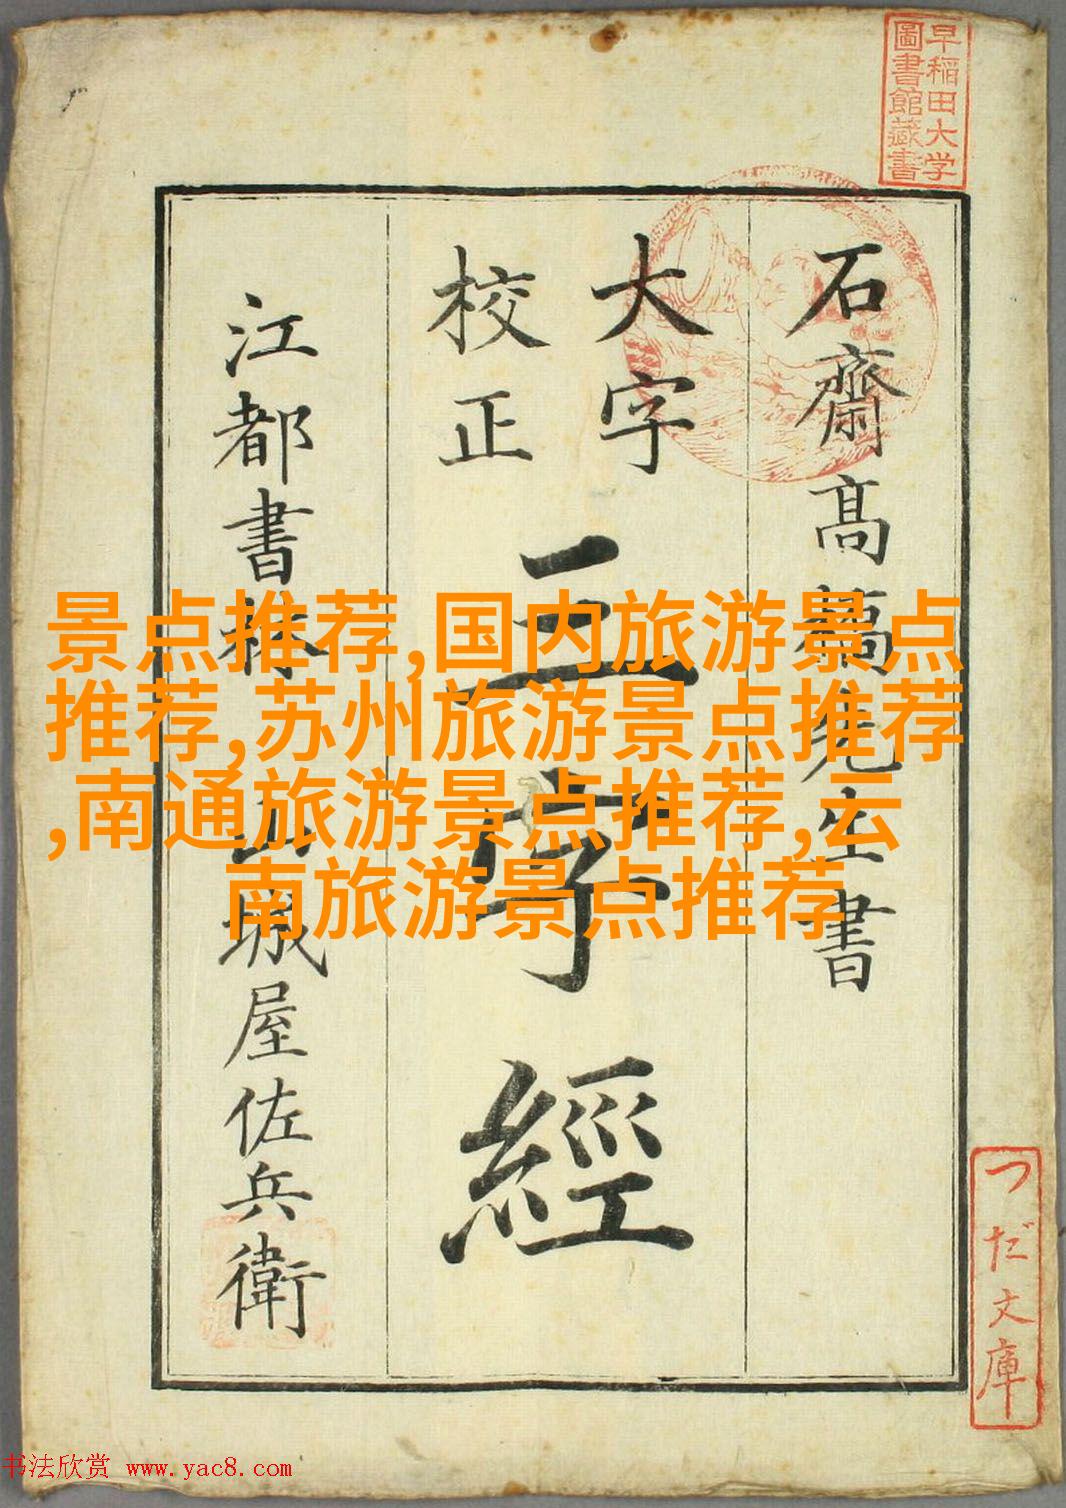 早稲田大学
圖書館藏書
石齋髙槗先生書
大字
校正
三字經
江都書林 山城屋佐兵衛
景点推荐,国内旅游景点
推荐,苏州旅游景点推荐
,南通旅游景点推荐,云
南旅游景点推荐
つだ文庫
书法欣赏 www.yac8.com